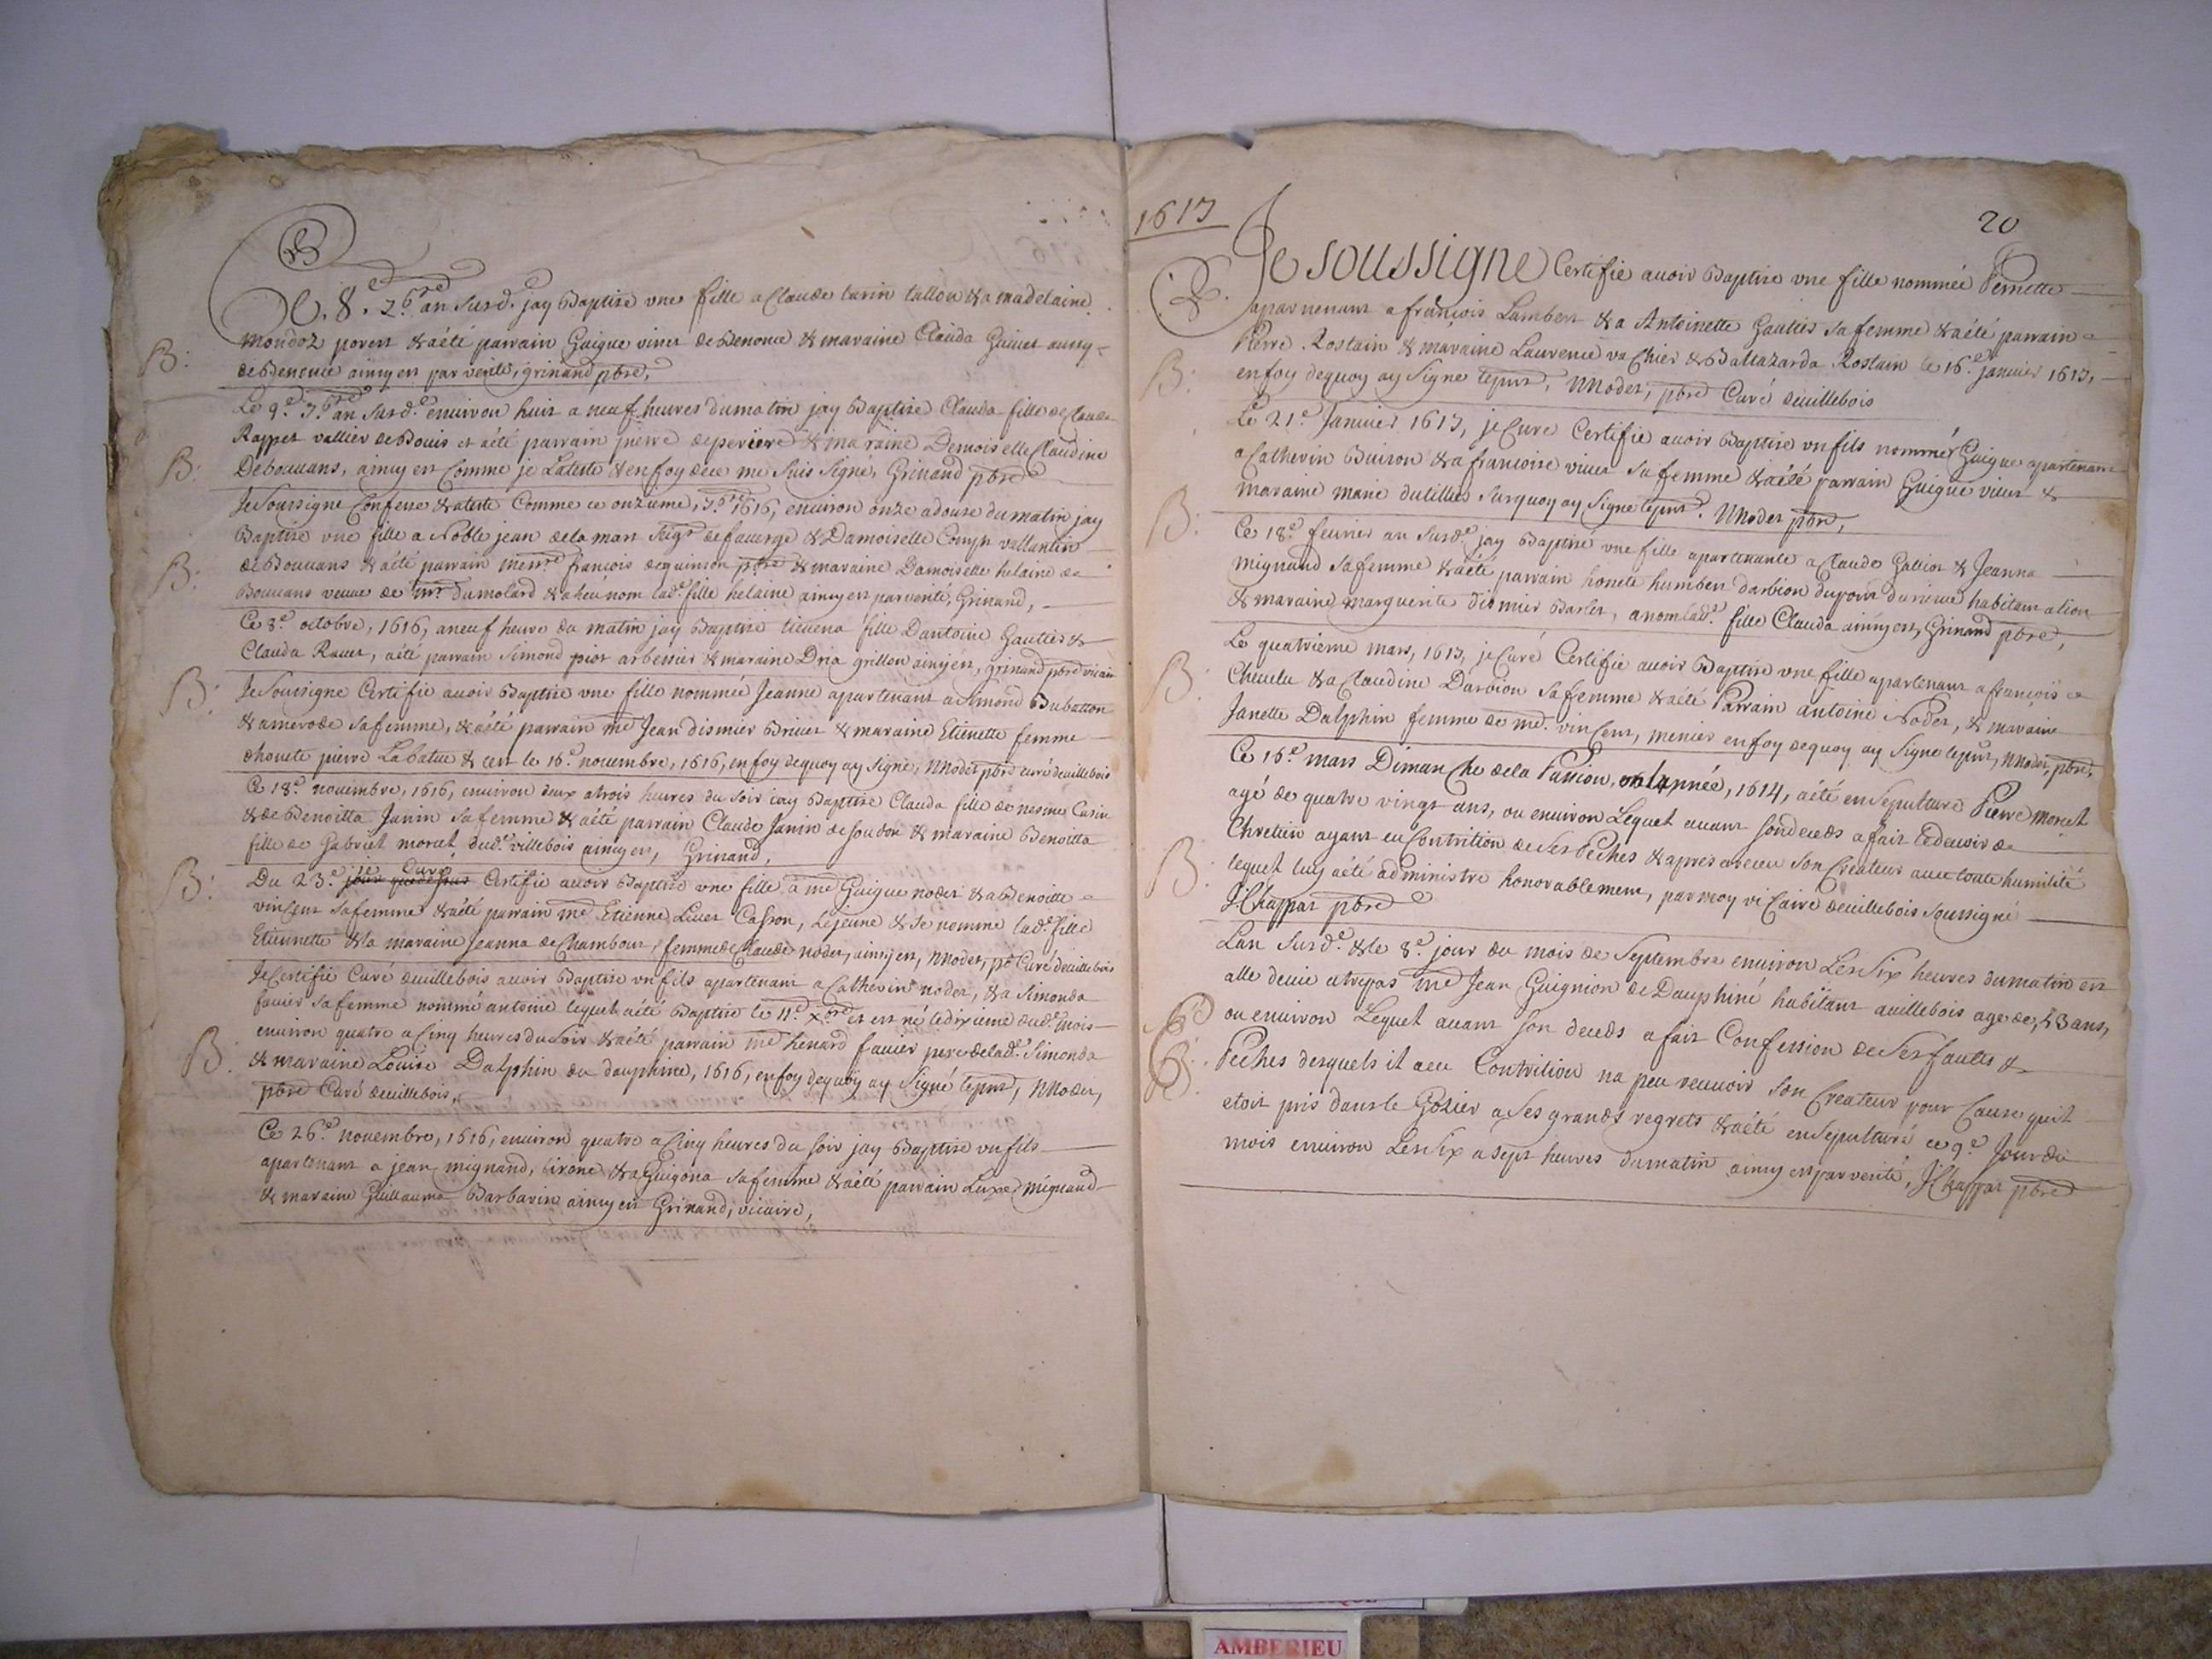 B
Ce. 8.e 7bre an susd. jay Baptisé une fille a Claude tavin tallon & a madelaine
mondoz povert & a été parrain Guigue vinet de Benonce & maraine Clauda Guinet aussy
de Benonce ainsy est par verité, grinand pbre,
Le 9.e 7bre an susd.e environ huit a neuf heures du matin jay Baptisé Clauda fille de Claude
Rappet vallier de Bouis et a été parrain pierre deperiere & maraine Demoiselle Claudine
De bouuans, ainsy est Comme je Lateste & en foy de ce me suis signé, Grinand pbre
Je Soussigné Confesse & ateste Comme ce onzieme, 7bre 1616, environ onze a douse du matin jay
Baptisé une fille a Noble jean de la mart seigr de fauerge & Damoiselle vallantin
de Bouuans & a été parrain messre francois deguinson pbre & maraine Damoiselle helaine de
Bouuans veuue de mr dumolard & a heu nom lad.e fille helaine ainsy est par verité, Grinand,
Ce 8.e octobre, 1616, a neuf heure du matin jay Baptisé tievena fille Dantoine Gautier &
Clauda Rauet, a été parrain Simond piot arbessier & maraine Dria grillen ainsy est, grinand pbre vicaire
Je Soussigné Certifie auoir Baptisé une fille nommée Jeanne apartenant a Simond Bubatton
& amerode sa femme, & a été parrain me Jean dismier Briuet & maraine Etienette femme
dhonete pierre Labatue & cest le 16.e novembre, 1616, en foy dequoy ay signé, MNodet pbre curé deuillebois
Ce 18.e novembre, 1616, environ deux a trois heures du soir iay Baptisé Clauda fille de nesmes Casin
& de Benoitta Janin sa femme & a été parrain Claude Janin de soudon & maraine Benoitta
fille de Gabriel moret dud.e villebois ainsy est, Grinand,
je Curé
Du 23.e jour que dessus Certifie auoir Baptisé une fille a me Guigue nodet & a Benoitte
vincent sa femme & a été parrain me Etienne Liuet Casson, Lejeune & se nomme lad.e fille
Etiennette & la maraine Jeanna de Chambour, femme de Claude nodet, ainsy est, MNodet, pb Curé deuillebois
Je Certifie Curé deuillebois auoir Baptisé un fils apartenant a Catherin nodet, & a Simonda
fauier sa femme nommé antoine lequel a été Baptisé le 11.e Xbre et est né le dixieme dud.e mois
environ quatre a Cinq heures du soir & a été parrain me henard fauier pere de lad.e Simonda
& maraine Louise Dalphin du dauphine, 1616, en foy dequoy ay Signé lepnt, MNodet,
pbre Curé deuillebois,
Ce 26.e novembre, 1616, environ quatre a Cinq heures du soir jay Baptisé un fils
apartenant a jean mignand, tirone & a Guigona sa femme & a été parrain Luxe mignand
& maraine Guillauma Barbarin ainsy est Grinand, vicaire,
B:
B:
B:
B:
B:
B:
1617
20
Je soussigne Certifie auoir Baptisé une fille nommée Pernette
apartenant a francois Lambert & a Antoinette Gautier sa femme & a été parrain
Pierre Rostain & maraine Laurence vachier & Baltazarda Rostain le 16.e janvier 1617,
en foy dequoy ay Signe lepnt, MNodet, pbre Curé deuillebois
Le 21.e Janvier 1617, je Cure Certifie auoir Baptisé un fils nommé Guigue apartenant
a Catherin Buiron & a francoise vinet sa femme & a été parrain Guigue vinet &
maraine marie dutillet surquoy ay Signe lepnt. MNodet pbre,
Ce 18.e feurier an susd.e jay Baptisé une fille apartenante a Claude Galliot & Jeanna
mignand sa femme & a été parrain honete humbert darbion dupoint duvieue habitant a lion
& maraine marguerite dismier Barlet, a nom lad.e fille Clauda ainsy est, Grinand pbre,
Le quatrieme mars, 1617, je Curé Certifie auoir Baptisé une fille apartenant a francois
Cheuelu & a Claudine Darbion sa femme & a été Parrain antoine Nodet, & maraine
Janette Dalphin femme de me. vincent, menier en foy dequoy ay Signe lepnt, MNodet, pbre,
Ce 16.e mars Dimanche de la Passion, en lannée, 1614, a été ensepulturé Pierre moret
agé de quatre vingt ans, ou environ Lequel auant son deceds a fait le deuoir de
Chretien ayant eu Contrition de ses Peches & apres a receu son Createur auec toute humilité
lequel luy a été administré honorablement, par moy viCaire deuillebois Soussigné
JChappat pbre
Lan susd.e & le 8.e jour du mois de Septembre environ Les Six heures du matin est
alle de vie a trepas me Jean Guignion de Dauphiné habitant auillebois age de, 43 ans,
ou environ Lequel auant son deceds a fait Confession de Ses fautes &
Peches desquels il a eu Contrition na peu receuoir son Createur pour Cause quil
etoit pris dans le Gozier a ses grands regrets & a été ensepulturé ce 9.e Jour du
mois environ Les Six a sept heures du matin ainsy est par verité, JChappat pbre
B:
B:
B:
B: